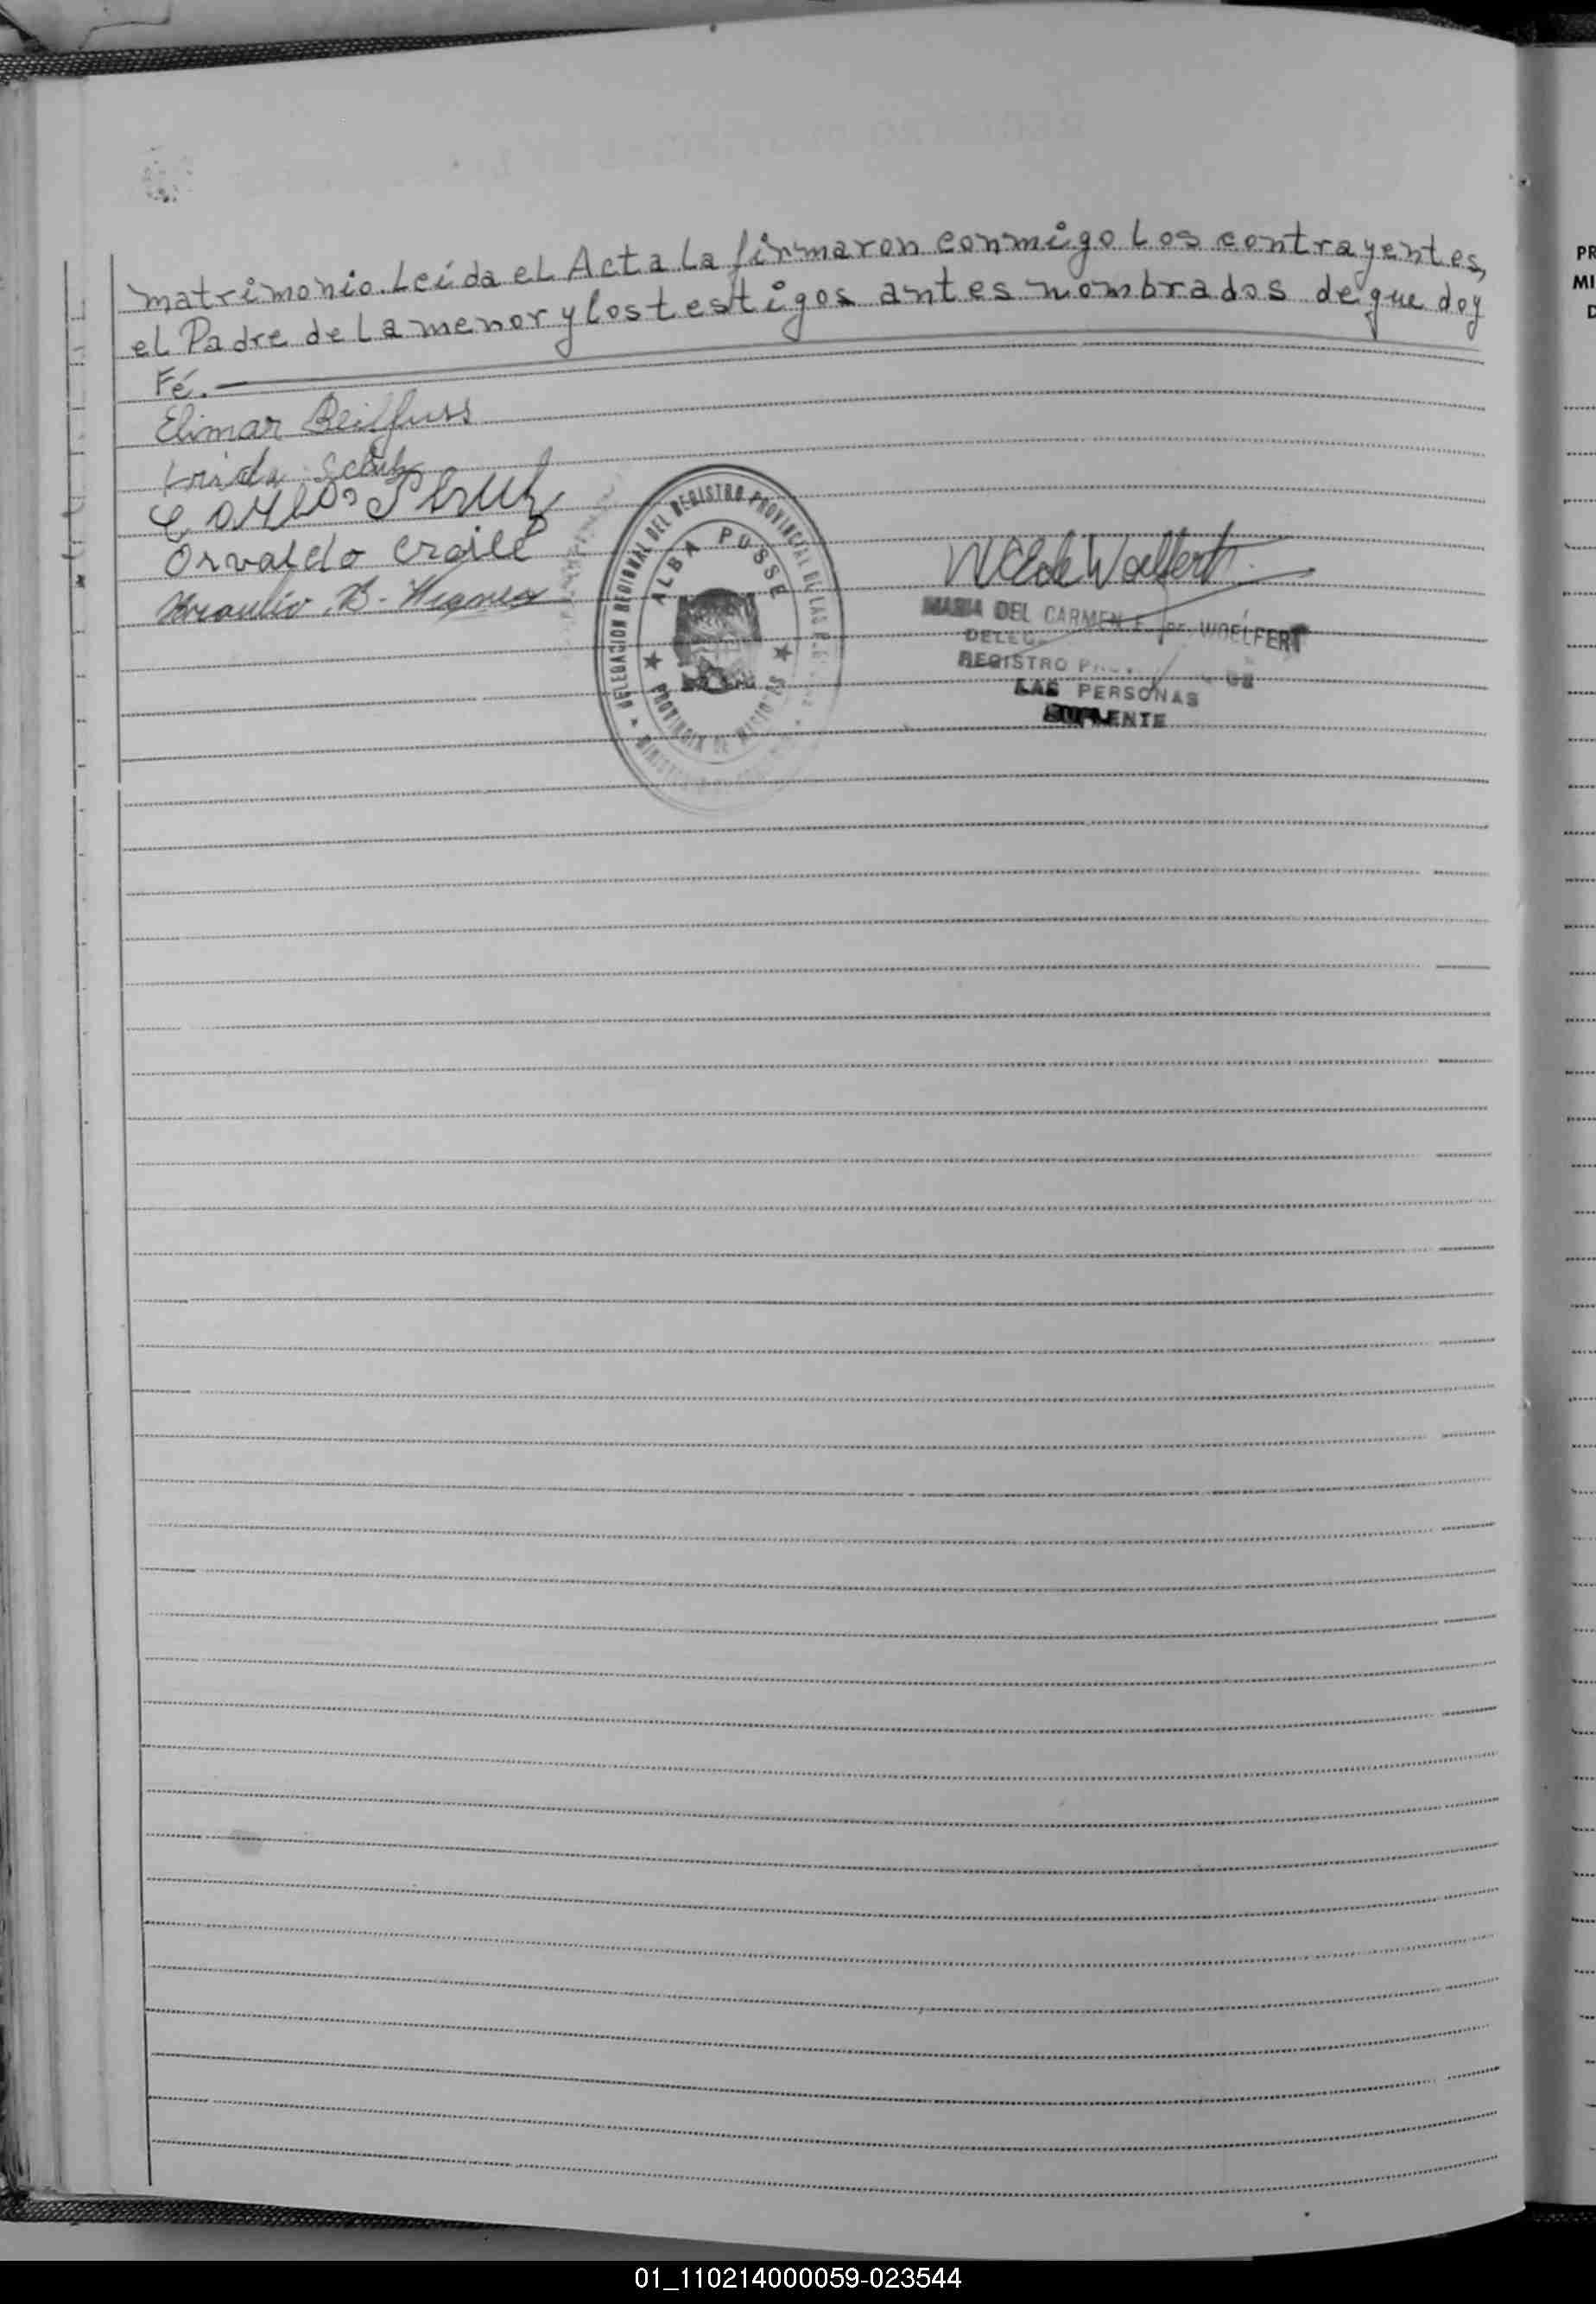 matrimonio. Leída el Acta la firmaron conmigo los contrayentes,
el Padre de la menor y los testigos antes nombrados de que doy
Fé.
Elimar Beilfuss
Carlos
Osvaldo
Braulio B.
DELEGACION REGIONAL DEL REGISTRO PROVINCIAL DE LAS
ALBA POSSE
PROVINCIA DE MISIONES
MCE de Woelfert
MARIA DEL CARMEN E. DE WOELFERT
REGISTRO
LAS PERSONAS
SUPLENTE
PR
MI
D
01_110214000059-023544